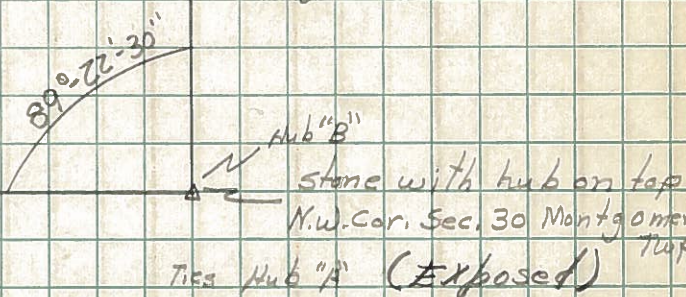 89°-22'-30"
Hub "B"
stone with hub on top
N.W. Cor. Sec. 30 Montgomer
Twp
Ties Hub "A" (Exposed)